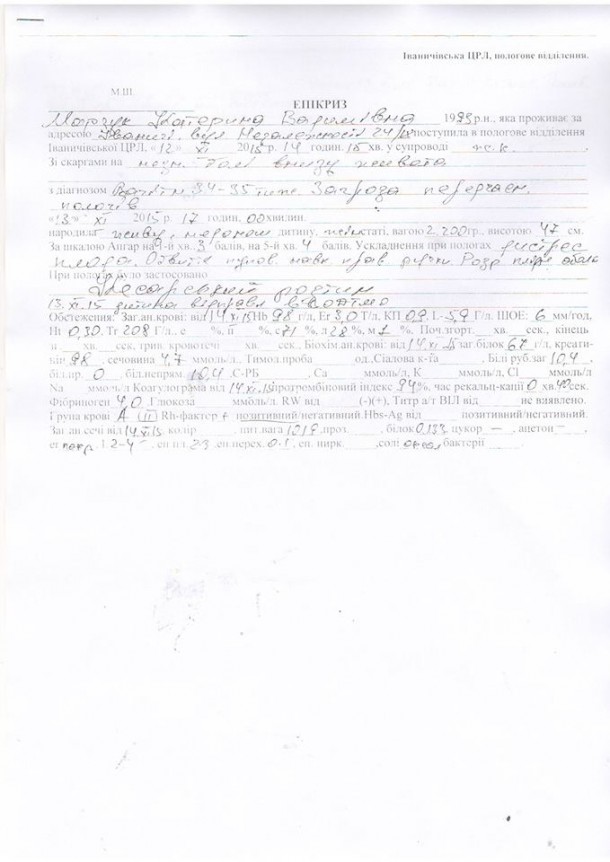 Іваничівська ЦРЛ, пологове відділення.
М.Ш.
ЕПІКРИЗ
Марчук Катерина Вадимівна 1993р.н., яка проживає за
адресою Іваничі, вул Незалежності поступила в пологове відділення
Іваничівської ЦРЛ, «12» XI 2015р. 14 годин. 15 хв. у супроводі
Зі скаргами на болі внизу живота
з діагнозом 34-35 тиж. Загроза передчасн.
пологів
«13» XI 2015 р. 17 годин. 00 хвилин.
народила живу, недонош дитину, статі, вагою 2.200гр., висотою 47 см.
За шкалою Апгар на 1-й хв. 3 балів, на 5-й хв. 4 балів. Ускладнення при пологах дистрес
плода.
При пологах було застосовано
Кесарський розтин
13.XI.15 дитина
Обстеження: Заг.ан.крові: від 14.XI.15 Hb 98 г/л, Er 3,0 Т/л, КП 0,9. L- 5,9 Г/л. ШОЕ: 6 мм/год,
Ht 0,30. Tr 208 Г/л.. е %, п %, с 71 %, л 28 %, м %. Поч.згорт. хв. сек., кінець
хв. сек, трив. кровотечі хв. сек., Біохім.ан.крові: від 14 XI 15 заг.білок 67 г/л, креати-
нін 98, сечовина 4,7 ммоль/л., Тимол.проба од.,Сіалова к-та , Білірубзаг 10,4,
біл.пр. 0 біл.непрям. 10,4, С-РБ , Ca ммоль/л, K ммоль/л, Cl ммоль/л
Na ммоль/л Коагулограма від 14 XI 15 протромбіновий індекс 94%, час рекальц-кації 0 хв. 40 сек.
Фібриноген 4,0 .Глюкоза ммоль/л. RW від (-)(+), Титр а/т ВІЛ від не виявлено.
Група крові A (II) Rh-фактор + позитивний/негативний.Hbs-Ag від позитивний/негативний.
Заг.ан сечі від 14.XI.15 колір , пит.вага 1019, проз. , білок 0,133 цукор – , ацетон – ,
L 2-4 , еп пл. 2-3 , еп.перех. 0-1, еп. нирк. ,солі бактерії .